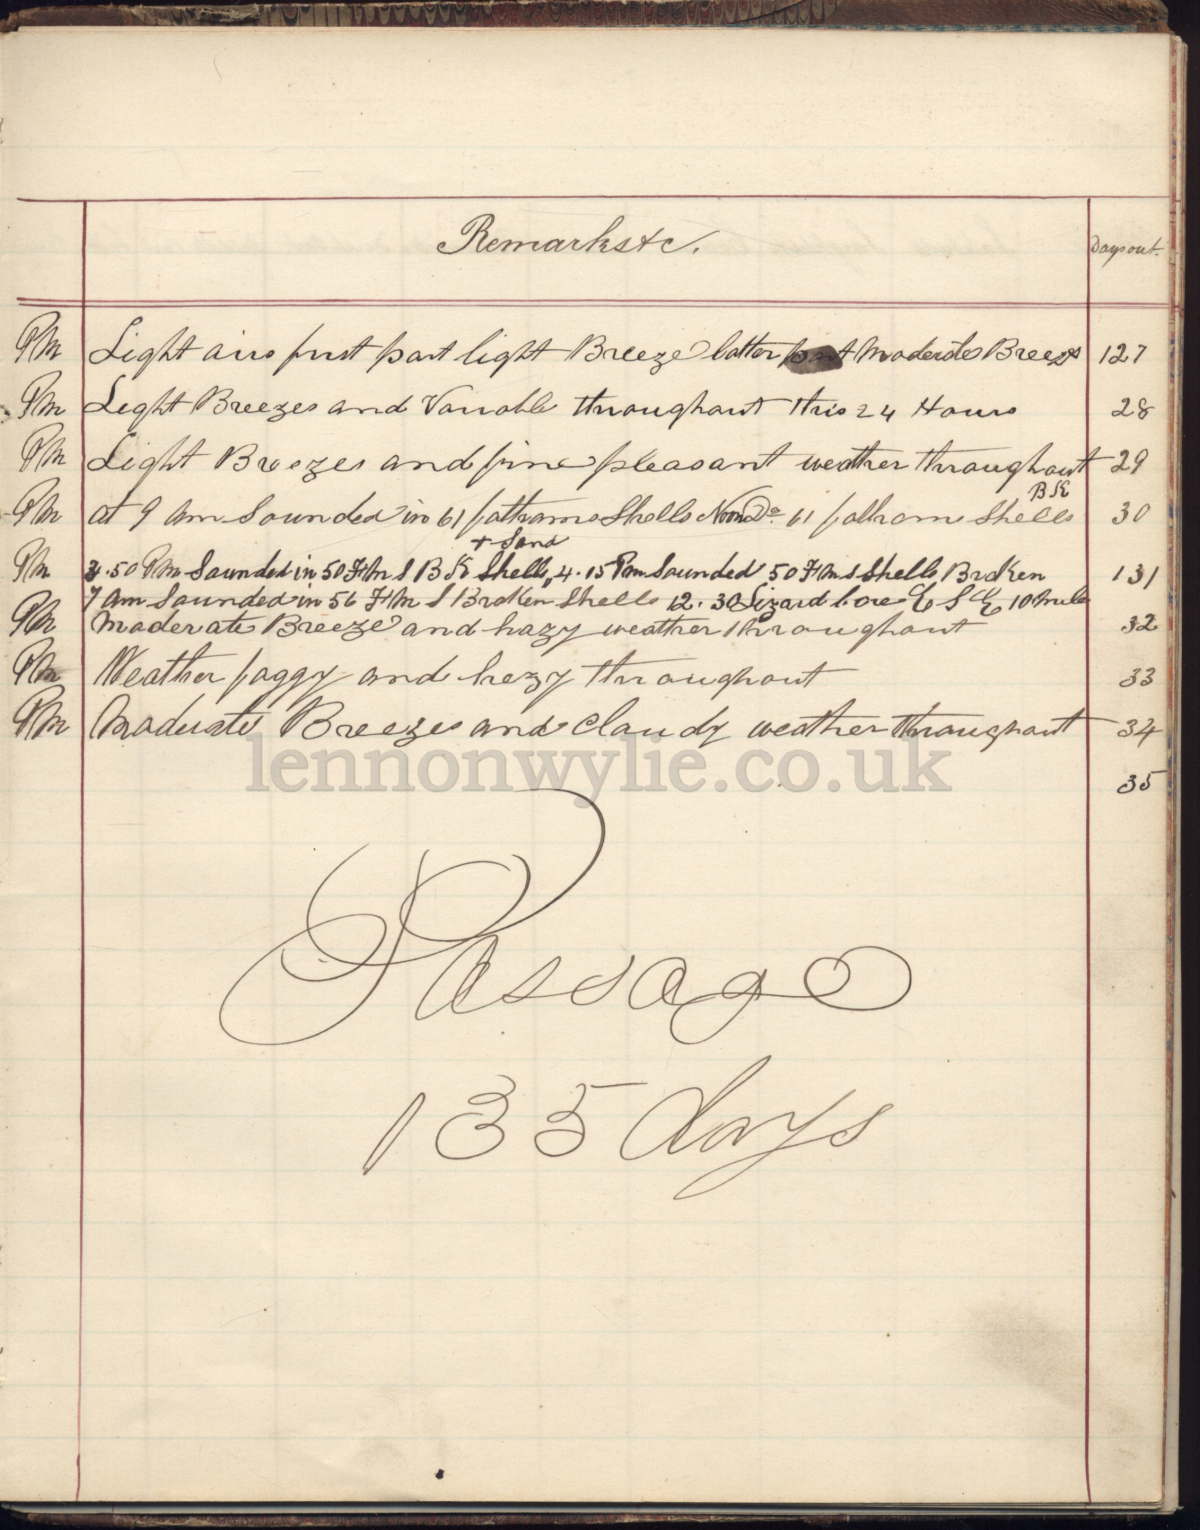 Remarks &c.
Days out.
PM Light airs first part light Breeze latter part Moderate Breezes 127
PM Light Breezes and Variable throughout this 24 Hours 28
PM Light Breezes and fine pleasant weather throughout 29
Bk
PM at 9 am Sounded in 61 fathoms Shells Noon Do 61 fathoms Shells 30
+ Sand
PM 3.50 PM Sounded in 50 FMS Bk Shells, 4.15 Pm Sounded 50 FMs Shells Broken 131
7 am Sounded in 56 FMS Broken Shells 12.30 Lizard bore 10 mile
PM Moderate Breeze and hazy weather throughout 32
PM Weather foggy and hezy throughout 33
PM Moderate Breezes and cloudy weather throughout 34
lennonwylie.co.uk
35
Passage
135 days